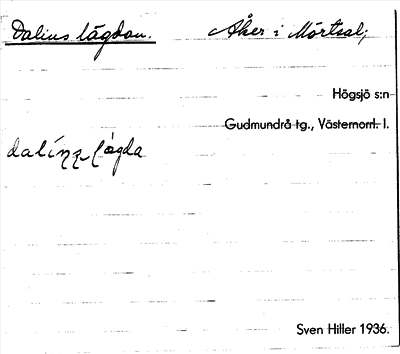 Dalius lägdan. Åker i Mörtsal;
Högsjö s:n
Gudmundrå tg., Västernorrl. l.
Sven Hiller 1936.